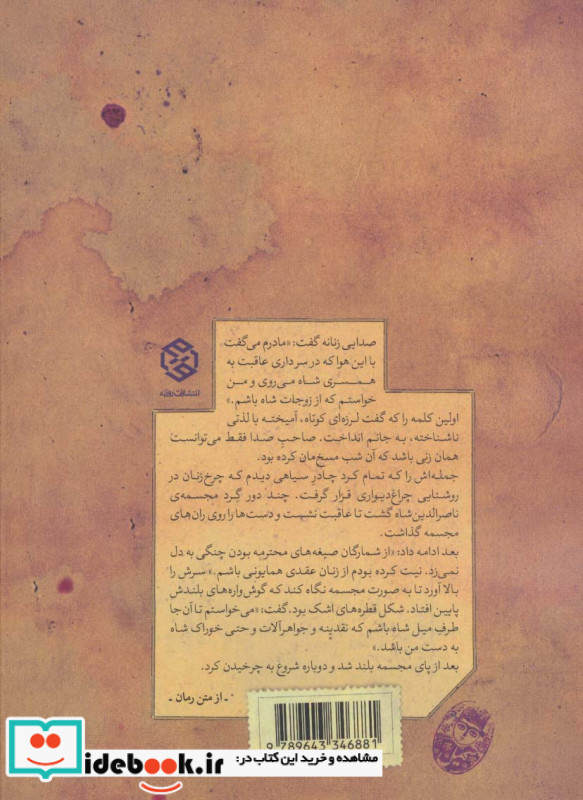 صدایی زنانه گفت: «مادرم می‌گفت
با این هوا که در سر داری عاقبت به
همسری شاه می‌روی و من
خواستم که از زوجات شاه باشم.»
انتشارات روزنه
اولین کلمه را که گفت لرزه‌ای کوتاه، آمیخته با لذتی
ناشناخته، به جانم انداخت. صاحبِ صدا فقط می‌توانست
همان زنی باشد که آن شب مسخ‌مان کرده بود.
جمله‌اش را که تمام کرد چادرِ سیاهی دیدم که چرخ‌زنان در
روشنایی چراغ‌دیواری قرار گرفت. چند دور گِرد مجسمه‌ی
ناصرالدین‌شاه گشت تا عاقبت نشست و دست‌ها را روی ران‌های
مجسمه گذاشت.
بعد ادامه داد: «از شمارگان صیغه‌های محترمه بودن چنگی به دل
نمی‌زد. نیت کرده بودم از زنان عقدی همایونی باشم.» سرش را
بالا آورد تا به صورت مجسمه نگاه کند که گوش‌واره‌های بلندش
پایین افتاد. شکل قطره‌های اشک بود. گفت: «می‌خواستم تا آن‌جا
طرفِ میل شاه باشم که نقدینه و جواهرآلات و حتی خوراک شاه
به دست من باشد.»
بعد از پای مجسمه بلند شد و دوباره شروع به چرخیدن کرد.
ـ از متن رمان ـ
9 789643 346881
مشاهده و خرید این کتاب در:
idebook.ir